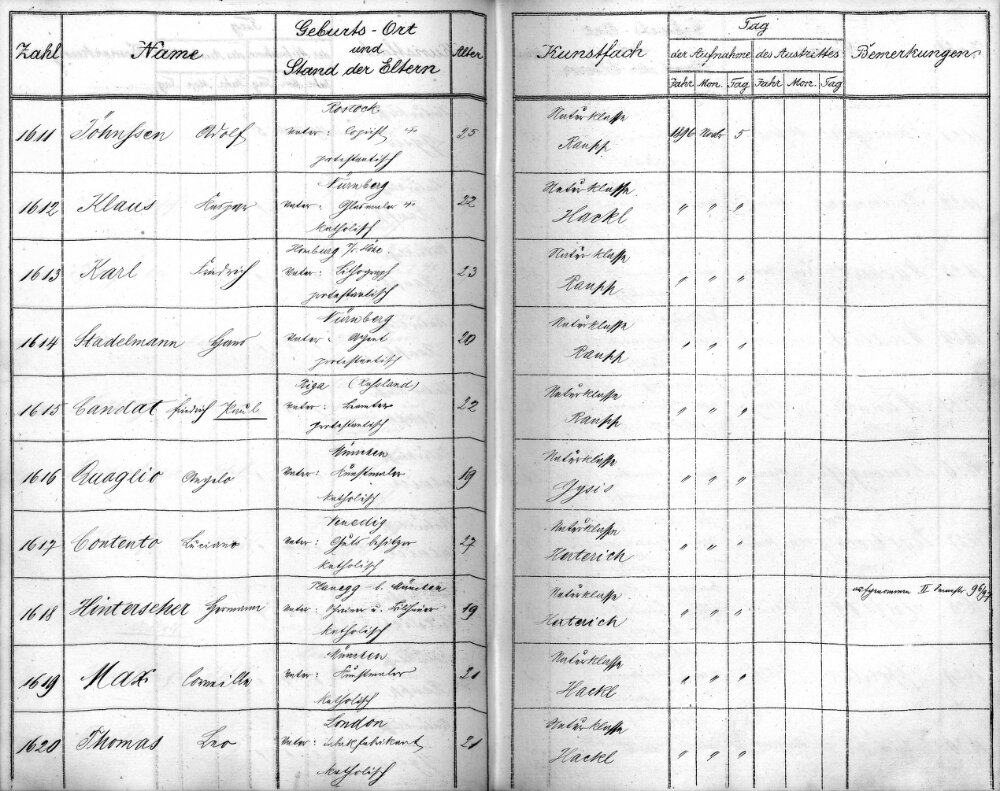 Zahl Name Geburts-Ort und Stand der Eltern Alter Kunstfach Tag der Aufnahme des Austrittes Bemerkungen
Jahr Mon. Tag Jahr Mon. Tag
Rostock Naturklasse
1611 Johnssen Adolf Vater: Copist + 25 Raupp 1896 Novb 5
protestantisch
Nürnberg Naturklasse
1612 Klaus Kaspar Vater: Glasmaler + 22 Hackl " " "
katholisch
Homburg v/. Höhe. Naturklasse
1613 Karl Friedrich Vater: Lithograph 23 Raupp " " "
protestantisch
Nürnberg Naturklasse
1614 Stadelmann Hans Vater: Agent 20 Raupp " " "
protestantisch
Riga (Russland) Naturklasse
1615 Candat Friedrich Paul Vater: Beamter 22 Raupp " " "
protestantisch
München Naturklasse
1616 Quaglio Angelo Vater: Kunstmaler 19 Gysis " " "
katholisch
Venedig Naturklasse
1617 Contento Luciano Vater: Gutsbesitzer 27 Herterich " " "
katholisch
Planegg b. München Naturklasse
1618 Hinterseher Hermann Vater: u. 19 Herterich " " " II Semester 96/97
katholisch
München Naturklasse
1619 Max Corneille Vater: Kunstmaler 21 Hackl " " "
katholisch
London Naturklasse
1620 Thomas Leo Vater: 21 Hackl " " "
katholisch